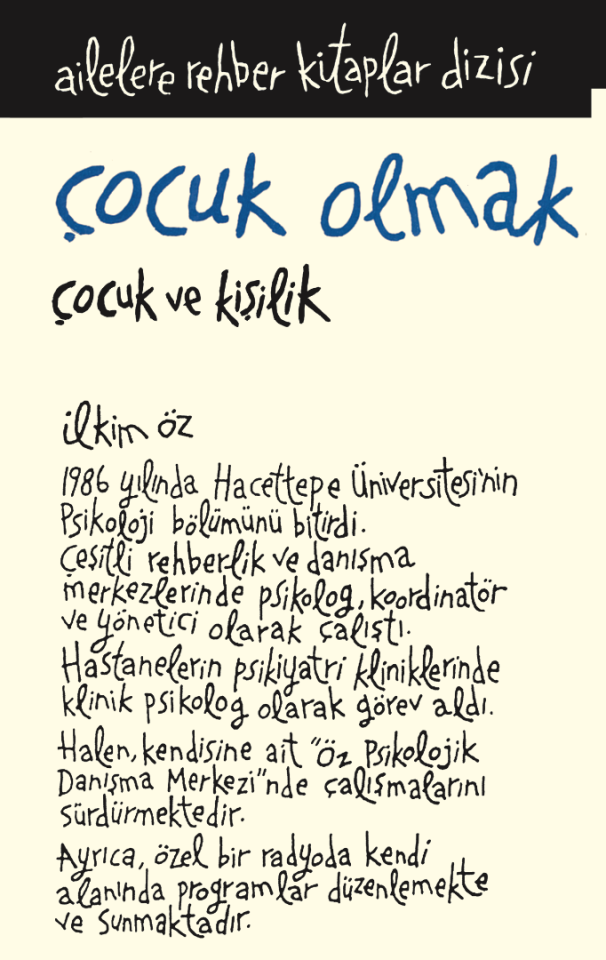 ailelere rehber kitaplar dizisi
çocuk olmak
çocuk ve kişilik
ilkim öz
1986 yılında Hacettepe Üniversitesi'nin
Psikoloji bölümünü bitirdi.
Çeşitli rehberlik ve danışma
merkezlerinde psikolog, koordinatör
ve yönetici olarak çalıştı.
Hastanelerin psikiyatri kliniklerinde
klinik psikolog olarak görev aldı.
Halen, kendisine ait "Öz Psikolojik
Danışma Merkezi"nde çalışmalarını
sürdürmektedir.
Ayrıca, özel bir radyoda kendi
alanında programlar düzenlemekte
ve sunmaktadır.